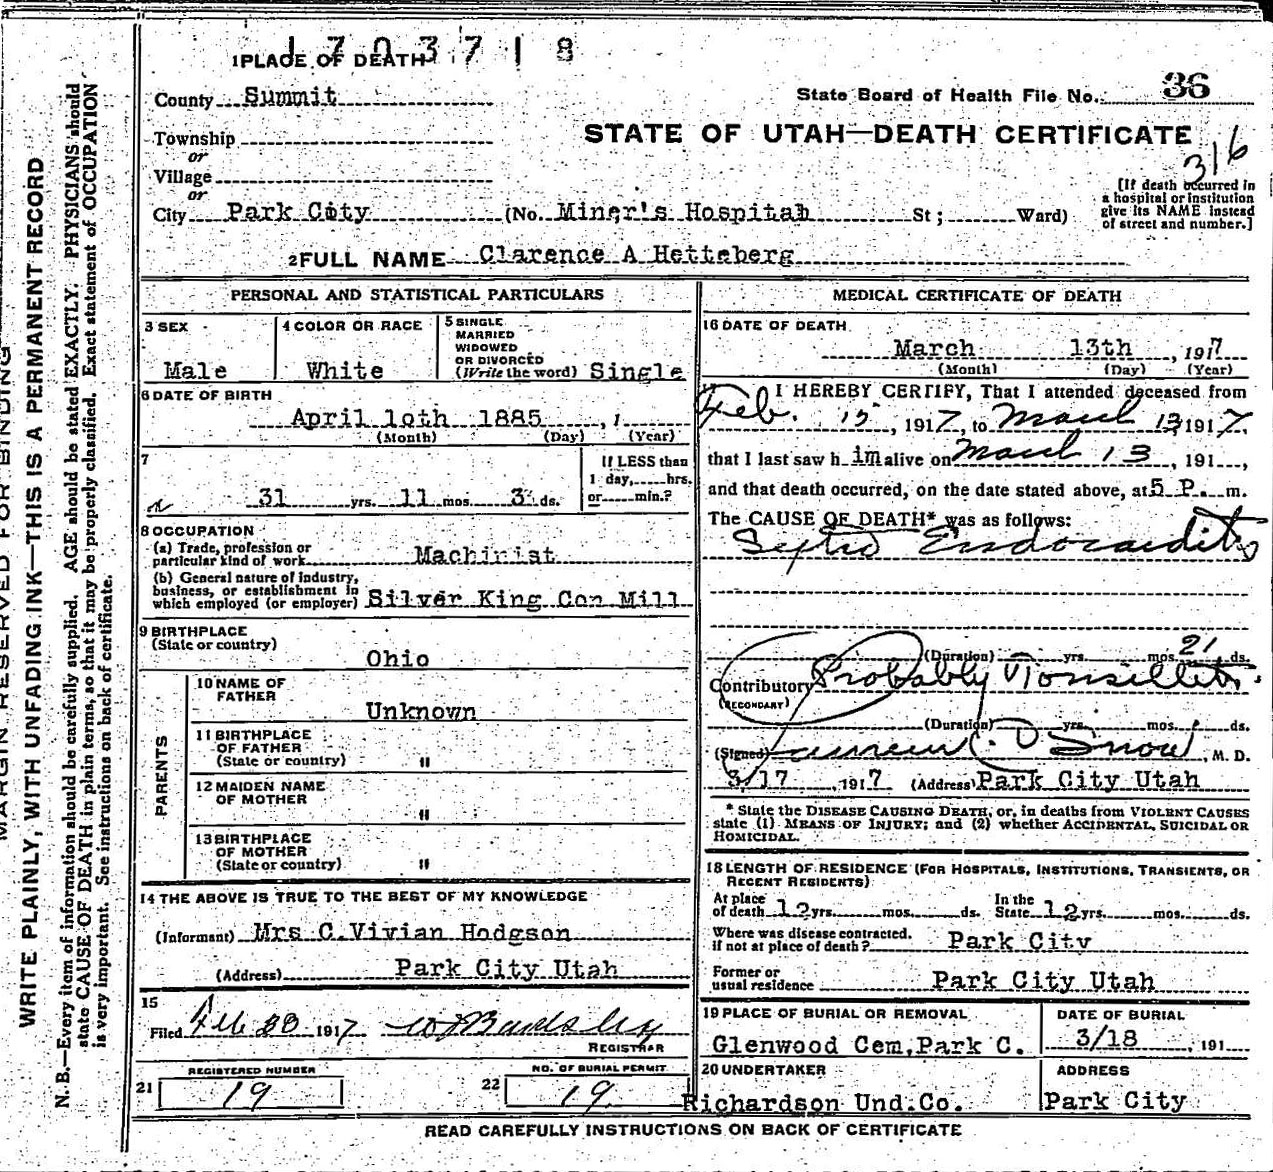 1 7 0 3 7 1 8
1 PLACE OF DEATH
County Summit
State Board of Health File No. 36
Township
STATE OF UTAH—DEATH CERTIFICATE
or
316
Village
or
[If death occurred in
a hospital or institution
give its NAME instead
of street and number.]
City Park City (No. Miner's Hospital St; Ward)
2 FULL NAME Clarence A Hetteberg
PERSONAL AND STATISTICAL PARTICULARS
3 SEX
Male
4 COLOR OR RACE
White
5 SINGLE
MARRIED
WIDOWED
OR DIVORCED
(Write the word) Single
6 DATE OF BIRTH
April 1oth 1885
(Month) (Day) (Year)
7
31 yrs. 11 mos. 3 ds.
If LESS than
1 day, hrs.
or min.?
8 OCCUPATION
(a) Trade, profession or
particular kind of work Machinist
(b) General nature of industry,
business, or establishment in
which employed (or employer) Silver King Con Mill
9 BIRTHPLACE
(State or country)
Ohio
PARENTS
10 NAME OF
FATHER
Unknown
11 BIRTHPLACE
OF FATHER
(State or country) "
12 MAIDEN NAME
OF MOTHER
"
13 BIRTHPLACE
OF MOTHER
(State or country) "
14 THE ABOVE IS TRUE TO THE BEST OF MY KNOWLEDGE
(Informant) Mrs C.Vivian Hodgson
(Address) Park City Utah
15
Filed Feb 1917
REGISTRAR
REGISTERED NUMBER
21 19
NO. OF BURIAL PERMIT
22 19
MEDICAL CERTIFICATE OF DEATH
16 DATE OF DEATH
March 13th, 1917
(Month) (Day) (Year)
I HEREBY CERTIFY, That I attended deceased from
Feb. 15, 1917, to March 13 1917,
that I last saw h im alive on March 13, 191 ,
and that death occurred, on the date stated above, at 5 P. m.
The CAUSE OF DEATH* was as follows:
Septic Endocarditis
(Duration) yrs. mos. 21 ds.
Contributory Probably Tonsillitis.
(SECONDARY)
(Duration) yrs. mos. ds.
(Signed) Snow, M. D.
3/17, 1917 (Address) Park City Utah
* State the DISEASE CAUSING DEATH, or, in deaths from VIOLENT CAUSES
state (1) MEANS OF INJURY; and (2) whether ACCIDENTAL, SUICIDAL OR
HOMICIDAL.
18 LENGTH OF RESIDENCE (FOR HOSPITALS, INSTITUTIONS, TRANSIENTS, OR
RECENT RESIDENTS)
At place
of death 12 yrs. mos. ds. In the
State 12 yrs. mos. ds.
Where was disease contracted.
if not at place of death? Park City
Former or
usual residence Park City Utah
19 PLACE OF BURIAL OR REMOVAL
Glenwood Cem,Park C.
DATE OF BURIAL
3/18, 191
20 UNDERTAKER
Richardson Und.Co.
ADDRESS
Park City
READ CAREFULLY INSTRUCTIONS ON BACK OF CERTIFICATE
MARGIN RESERVED FOR BINDING
WRITE PLAINLY, WITH UNFADING INK—THIS IS A PERMANENT RECORD
N. B.—Every item of information should be carefully supplied. AGE should be stated EXACTLY. PHYSICIANS should
state CAUSE OF DEATH in plain terms, so that it may be properly classified. Exact statement of OCCUPATION
is very important. See instructions on back of certificate.